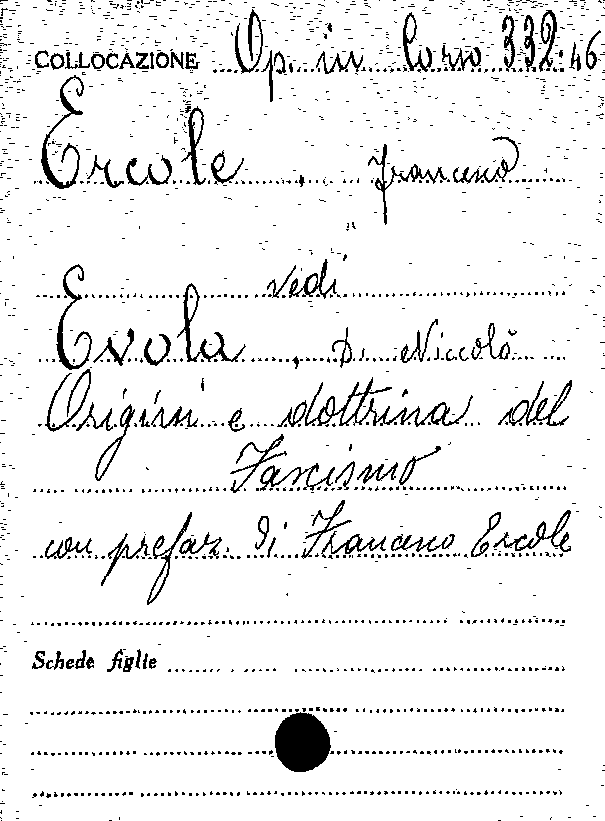 COLLOCAZIONE Op. in Corso 332:46
Ercole, Francesco
vedi
Evola, D. Niccolò
Origini e dottrina del
Fascismo
con prefaz. di Francesco Ercole
Schede figlie